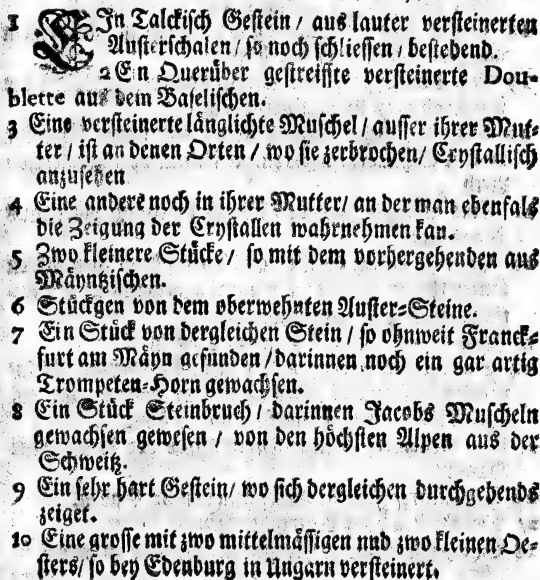 1 EIn Talckisch Gestein / aus lauter versteinerten
Austerschalen / so noch schliessen / bestehend.
2 En Querüber gestreiffte versteinerte Dou-
blette aus dem Baselischen.
3 Eine versteinerte länglichte Muschel / ausser ihrer Mut-
ter / ist an denen Orten / wo sie zerbrochen / Crystallisch
anzusehen
4 Eine andere noch in ihrer Mutter / an der man ebenfals
die Zeigung der Crystallen wahrnehmen kan.
5 Zwo kleinere Stücke / so mit dem vorhergehenden aus
Mäyntzischen.
6 Stückgen von dem oberwehnten Auster-Steine.
7 Ein Stück von dergleichen Stein / so ohnweit Franck-
furt am Mäyn gefunden / darinnen noch ein gar artig
Trompeten-Horn gewachsen.
8 Ein Stück Steinbruch / darinnen Jacobs Muscheln
gewachsen gewesen / von den höchsten Alpen aus der
Schweitz.
9 Ein sehr hart Gestein / wo sich dergleichen durchgehends
zeiget.
10 Eine grosse mit zwo mittelmässigen und zwo kleinen Oe-
sters / so bey Edenburg in Ungarn versteinert.